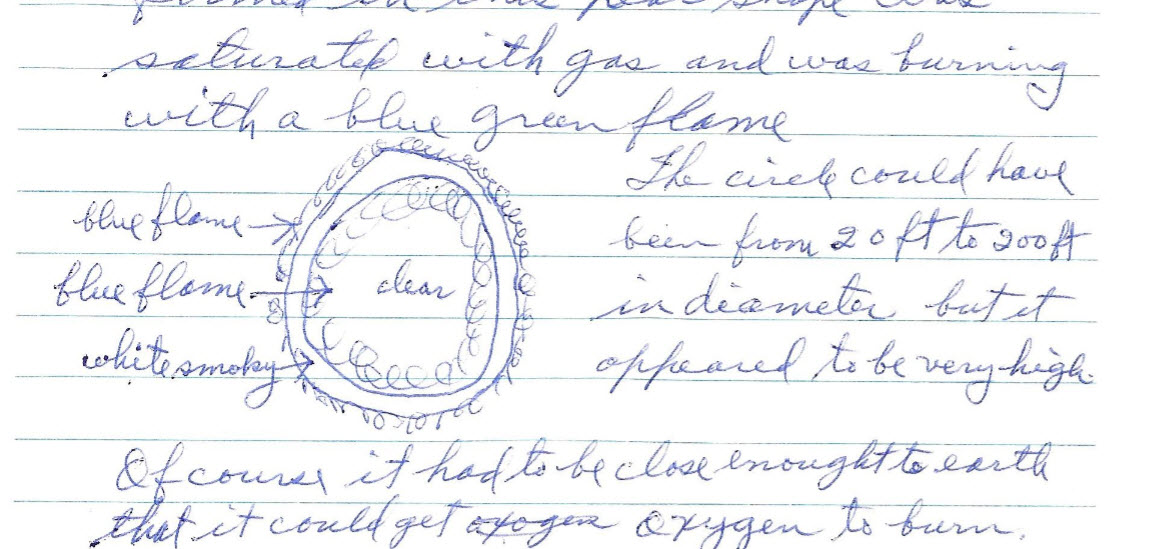 formed in this pear shape was
saturated with gas and was burning
with a blue green flame
blue flame
blue flame
white smoky
clear
The circle could have
been from 20 ft to 200 ft
in diameter but it
appeared to be very high.
Of course it had to be close enought to earth
that it could get oxogen oxygen to burn.